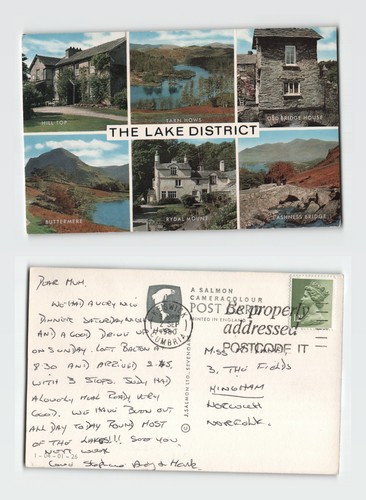 HILL TOP
TARN HOWS
OLD BRIDGE HOUSE
THE LAKE DISTRICT
BUTTERMERE
RYDAL MOUNT
ASHNESS BRIDGE
DEAR MUM,
WE HAD A VERY NICE
DINNER SATURDAY NIGHT
AND A GOOD DRIVE UP HERE
ON SUNDAY. LEFT
8 30 AND ARRIVED 3.45
WITH 3 STOPS. SUSY HAD
A LOVELY MEAL READY VERY
GOOD. WE HAVE BEEN OUT
ALL DAY TODAY ROUND MOST
OF THE LAKES!! SEE YOU
NEXT WEEK
Love Stephens Andy & Mark
1-04-01-26
A SALMON
CAMERACOLOUR
POST CARD
PRINTED IN ENGLAND
2 SEP
1980
CUMBRIA
Be properly
addressed
POSTCODE IT
A. SALMON LTD., SEVENOAKS
MISS
3, THE FIELDS
HINGHAM
NORWICH
NORFOLK.